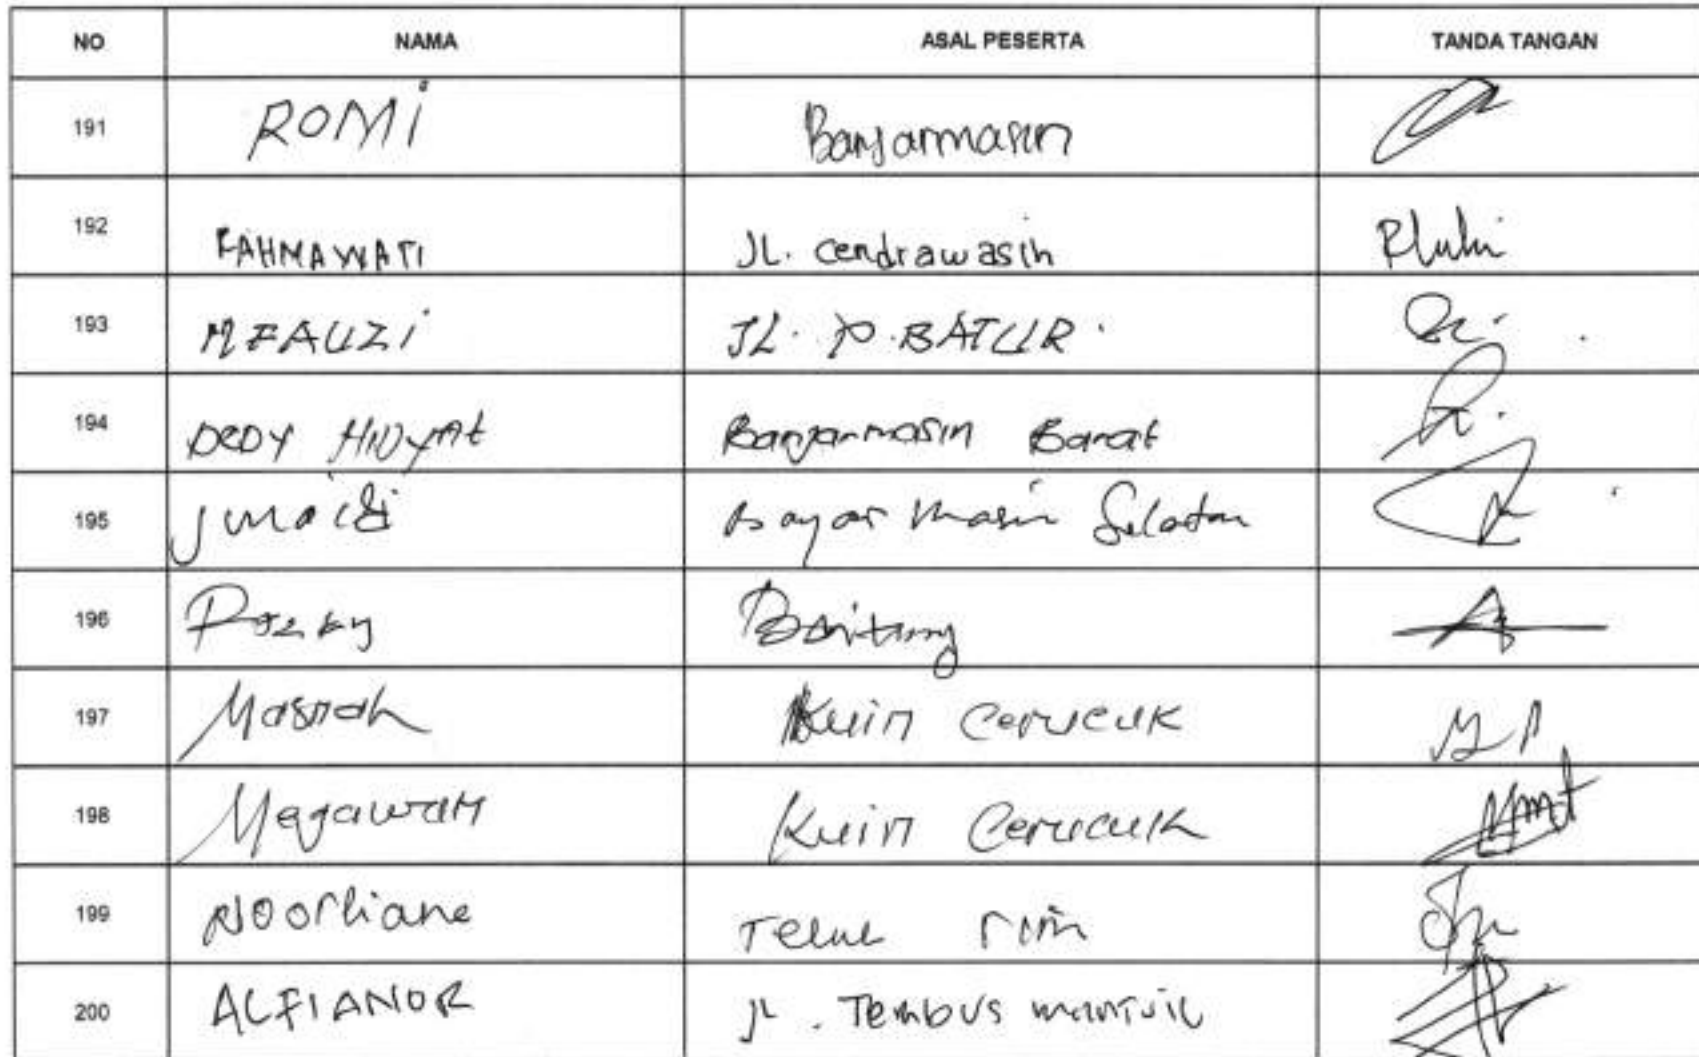 NO NAMA ASAL PESERTA TANDA TANGAN
191 ROMi Banjarmasin
192 RAHMAWATI JL. cendrawasih
193 M FAUZi JL. P. BATUR.
194 DEDY HIDYAt Banjarmasin Barat
195 Junaidi Banjar masin Selatan
196 Rozky
197 Masnah Kuin Cerucuk
198 Megawati Kuin Cerucuk
199 Noorliana Teluk
200 ALFIANOR JL. Tembus mantuil